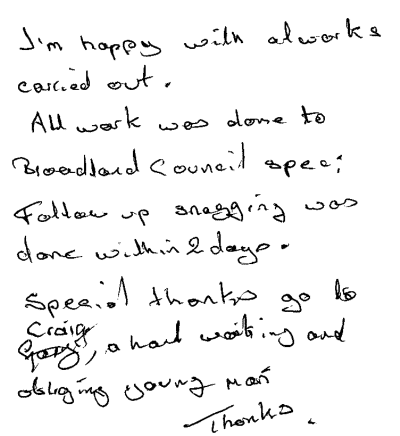 I'm happy with al works
carried out.
All work was done to
Broadland Council spec:
Follow up snagging was
done within 2 days.
Special thanks go to
Craig
Gary, a hard working and
obliging young man
Thanks.